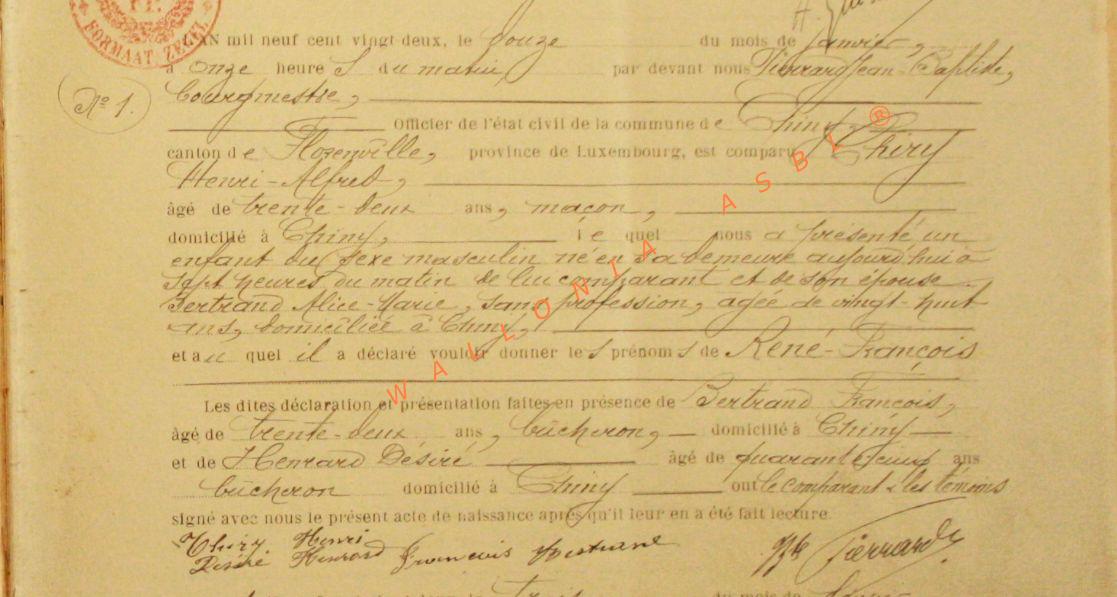 FORMAAT ZEGEL
L'AN mil neuf cent vingt-deux, le douze du mois de janvier,
à onze heures du matin par devant nous Pierrard Jean-Baptiste,
N° 1.
bourgmestre,
Officier de l'état civil de la commune de Chiny,
canton de Florenville, province de Luxembourg, est comparu Thiry
Henri-Alfred,
âgé de trente-deux ans, maçon,
domicilié à Chiny, le quel nous a présenté un
enfant du sexe masculin né en sa demeure aujourd'hui à
sept heures du matin de lui comparant et de son épouse
Bertrand Alice-Marie, sans profession, agée de vingt-huit
ans, domiciliée à Chiny,
et au quel il a déclaré vouloir donner les prénoms de René-François
Les dites déclaration et présentation faites en présence de Bertrand François,
âgé de trente-deux ans, bûcheron, domicilié à Chiny
et de Henrard Désiré âgé de quarante ans
bûcheron domicilié à Chiny ont le comparant & les témoins
signé avec nous le présent acte de naissance après qu'il leur en a été fait lecture.
Thiry Henri
Désiré Henrard François Bertrand Jb Pierrard
du mois de
WALLONIA ASBL ®